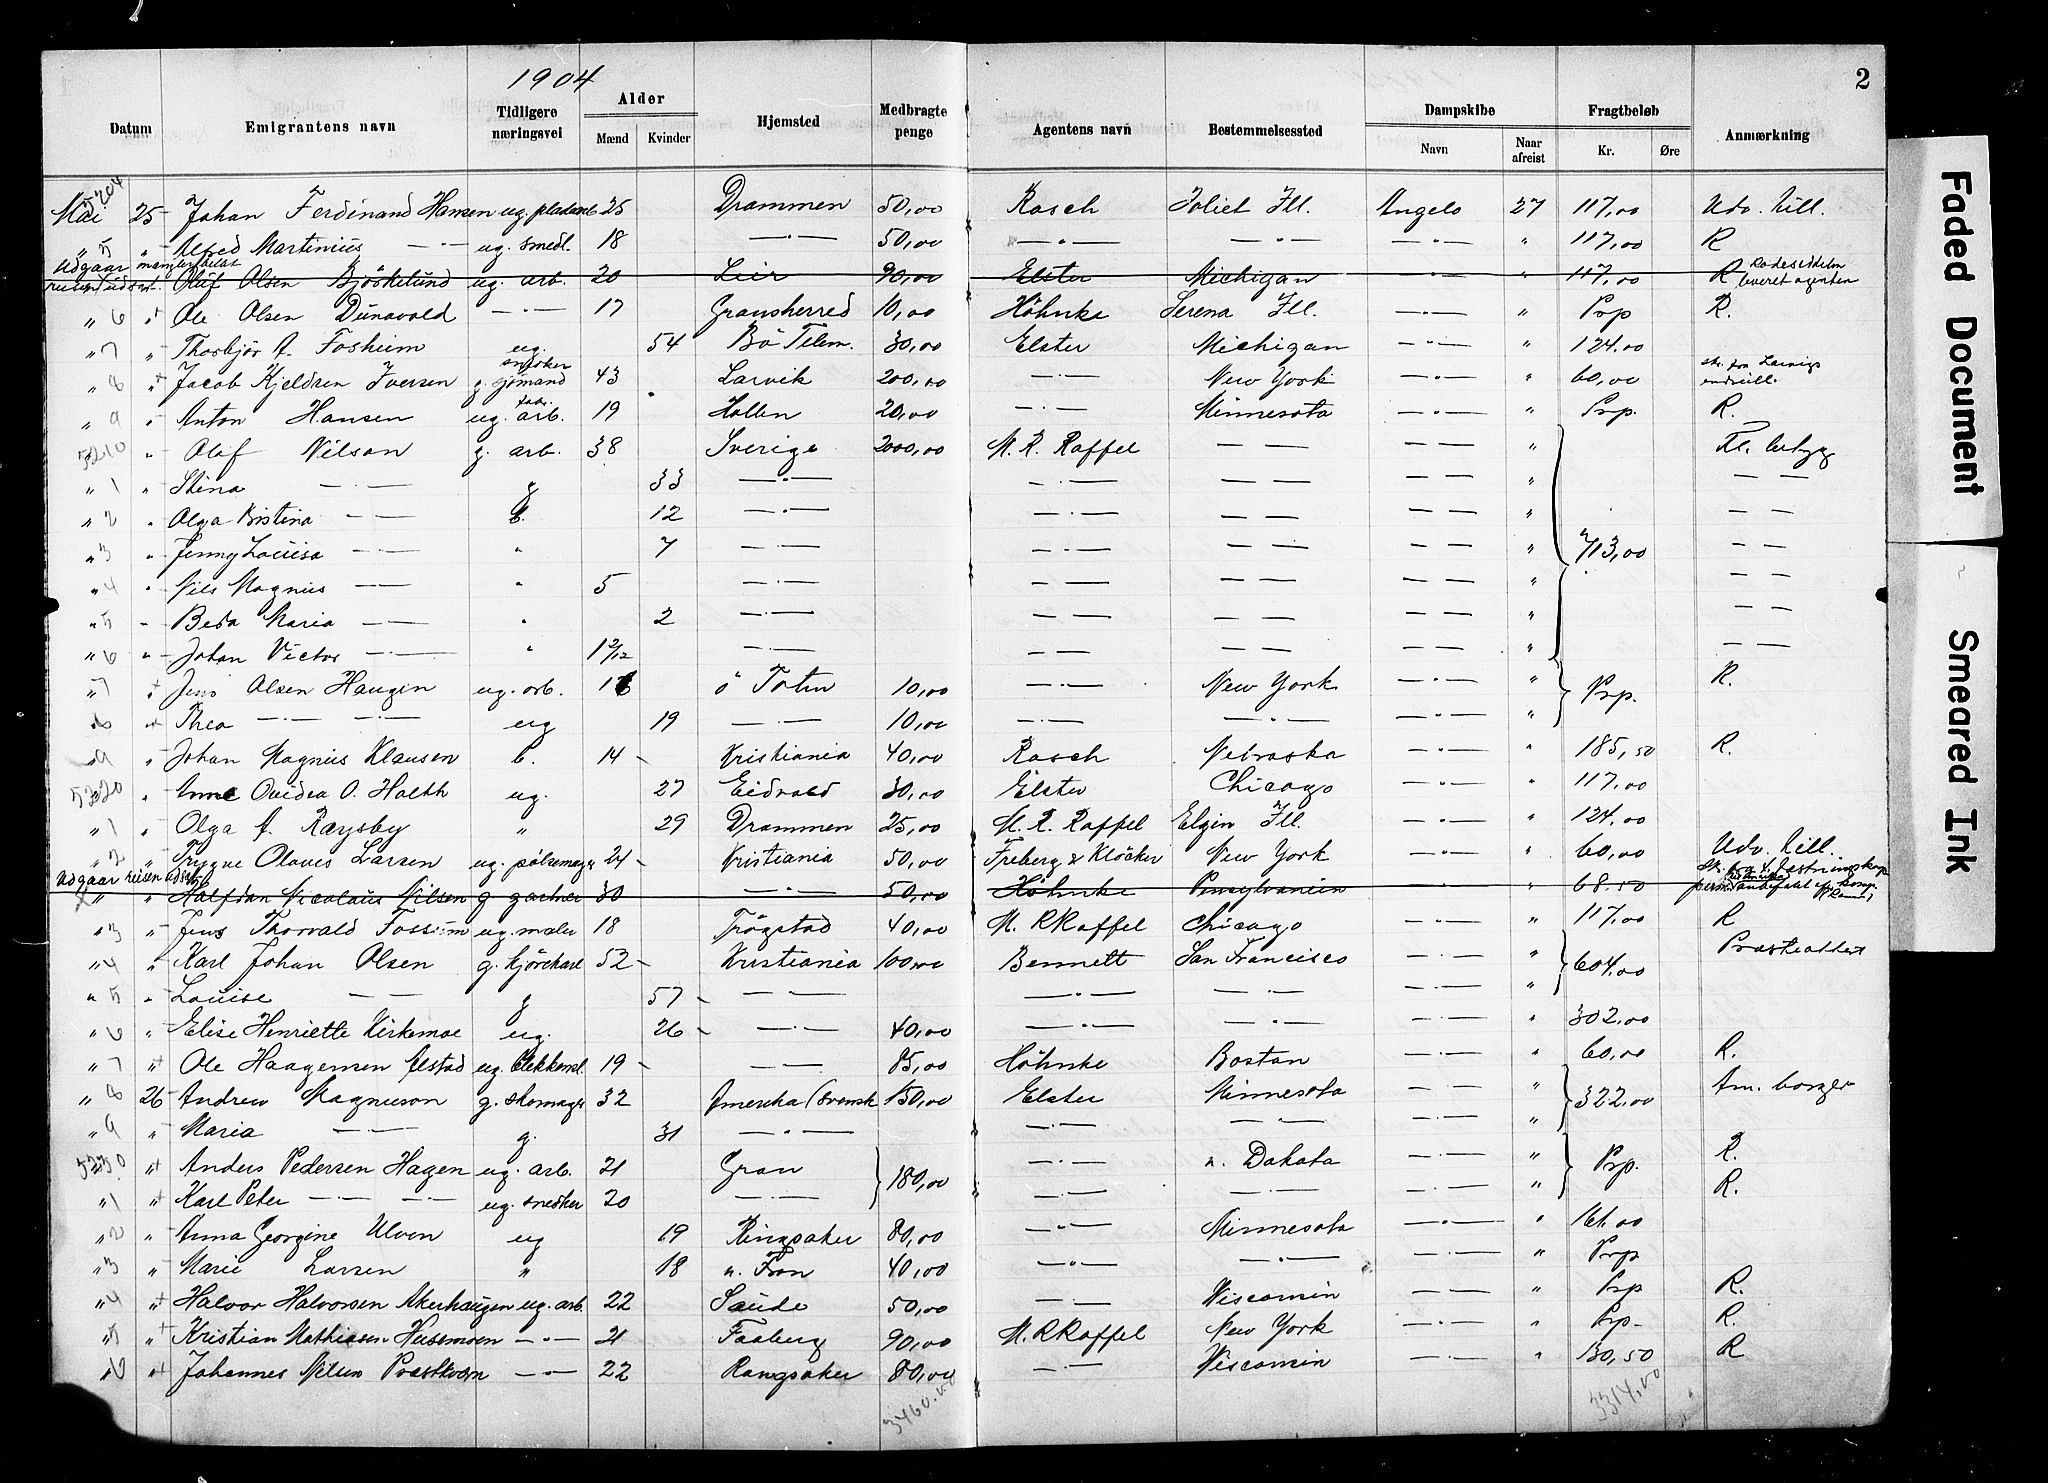 1904
2
Datum | Emigrantens navn | Tidligere næringsvei | Alder Mænd Kvinder | Hjemsted | Medbragte penge | Agentens navn | Bestemmelsessted | Dampskibe Navn Naar afreist | Fragtbeløb Kr. Øre | Anmærkning
5204
Mai 25 Johan Ferdinand Hansen ug. 25 Drammen 50,00 Rasch Joliet Ill. Angelo 27 117,00 Udv. till.
" 5 " Alfred Martinius — " — ug. smedl. 18 — " — 50,00 — " — — " — — " — " 117,00 R
Udgaar reisen udsat. Oluf Olsen Björkelund ug. arb. 20 Lier 90,00 Elster Michigan — " — " 117,00 R leveret agenten
" 6 " Ole Olsen Dünavold — " — 17 Gransherred 10,00 Höhnke Serena Ill. — " — " Prp R.
" 7 " Thorbjør A. Fosheim ug. 54 Bö Telem. 30,00 Elster Michigan — " — " 124,00
" 8 " Jacob Kjeldsen Iversen g. sjömand 43 Larvik 200,00 — " — New York — " — " 60,00
" 9 " Anton Hansen ug. arb. 19 Hollen 20,00 — " — Minnesota — " — " Prp. R.
5210 " Olof Nilson g. arb. 38 Sverige 2000,00 M. R. Raffel — — — — "
" 1 " Stina — " — g 33 — " — — " — — — — — " — —
" 2 " Olga Kristina — " — b. 12 — " — — " — — — — — " — —
" 3 " Jenny Louisa " 7 — " — — " — — — — — " 713,00 — —
" 4 " Nils Magnus — — " 5 — " — — " — — — — — " — —
" 5 " Beda Maria — — " 2 — " — — — — — — — " — —
" 6 " Johan Victor — " — " 1 2/12 — " — — — — — — — " — —
" 7 " Jens Olsen Haugen ug. arb. 16 ö Toten 10,00 — " — New York — " — " Prp. R.
" 8 " Thea — " — — " — ug 19 — " — 10,00 — " — — " — — " — "
" 9 " Johan Magnus Klausen b. 14 Kristiania 40,00 Rasch Nebraska — " — " 185,50 R.
5220 " Anne Ovidea O. Holth ug. 27 Eidvold 30,00 Elster Chicago — " — " 117,00
" 1 " Olga A. Røysby " 29 Drammen 25,00 M. R. Raffel Elgin Ill. — " — " 124,00
" 2 " Trygve Olaves Larsen ug. pölsemager 24 Kristiania 50,00 Freberg & Klöcker New York — " — " 60,00 Udv. till.
Udgaar reisen udsat
" " Halfdan Nicolaüs Nilsen g gartner 30 — " — 50,00 Höhnke Pensylvanien — " — " 68,50
" 3 " Jens Thorvald Fossüm ug. maler 18 Trögstad 40,00 M. R Raffel Chicago — " — " 117,00 R
" 4 " Karl Johan Olsen g. kjörekarl 52 Kristiania 100,00 Bennett San Francisco — " — " 604,00 Præsteattest
" 5 " Louise — — g 57 — " — — " — — " — — " — "
" 6 " Elise Henriette Kirkemoe ug. 26 — " — 40,00 — " — — " — — " — " 302,00
" 7 " Ole Haagensen Alstad ug. blekkensl. 19 — " — 85,00 Höhnke Boston — " — " 60,00 R.
" 8 26 Andrew Magnuson g. skomager 32 Amerika (svensk 150,00 Elster Minnesota — " — " 322,00 Am. borger
" 9 " Maria — — g. 31 — " — — " — — " — — " — "
5230 " Anders Pedersen Hagen ug. arb. 21 Gran 180,00 — " — n. Dakota — " — " Prp. R.
" 1 " Karl Peter — " — — " — ug. snedker 20 — " — — " — — " — — " — " R.
" 2 " Anna Georgine Ulven ug 19 Ringsaker 80,00 — " — Minnesota — " — " 161,00
" 3 " Marie Larsen " 18 n. Fron 40,00 — " — — " — — " — " Prp
" 4 " Halvor Halvorsen Akerhaugen ug. arb. 22 Saude 50,00 — " — Wisconsin — " — " Prp R.
" 5 " Kristian Mathiasen Husemoen — " — 21 Faaberg 90,00 M. R Raffel New York — " — " Prp- R.
" 6 " Johannes Nilsen Præstkværn — " — 22 Rangsaker 80,00 — " — Wisconsin — " — " 130,50 R
3460.00
3314,00
Faded Document
Smeared Ink